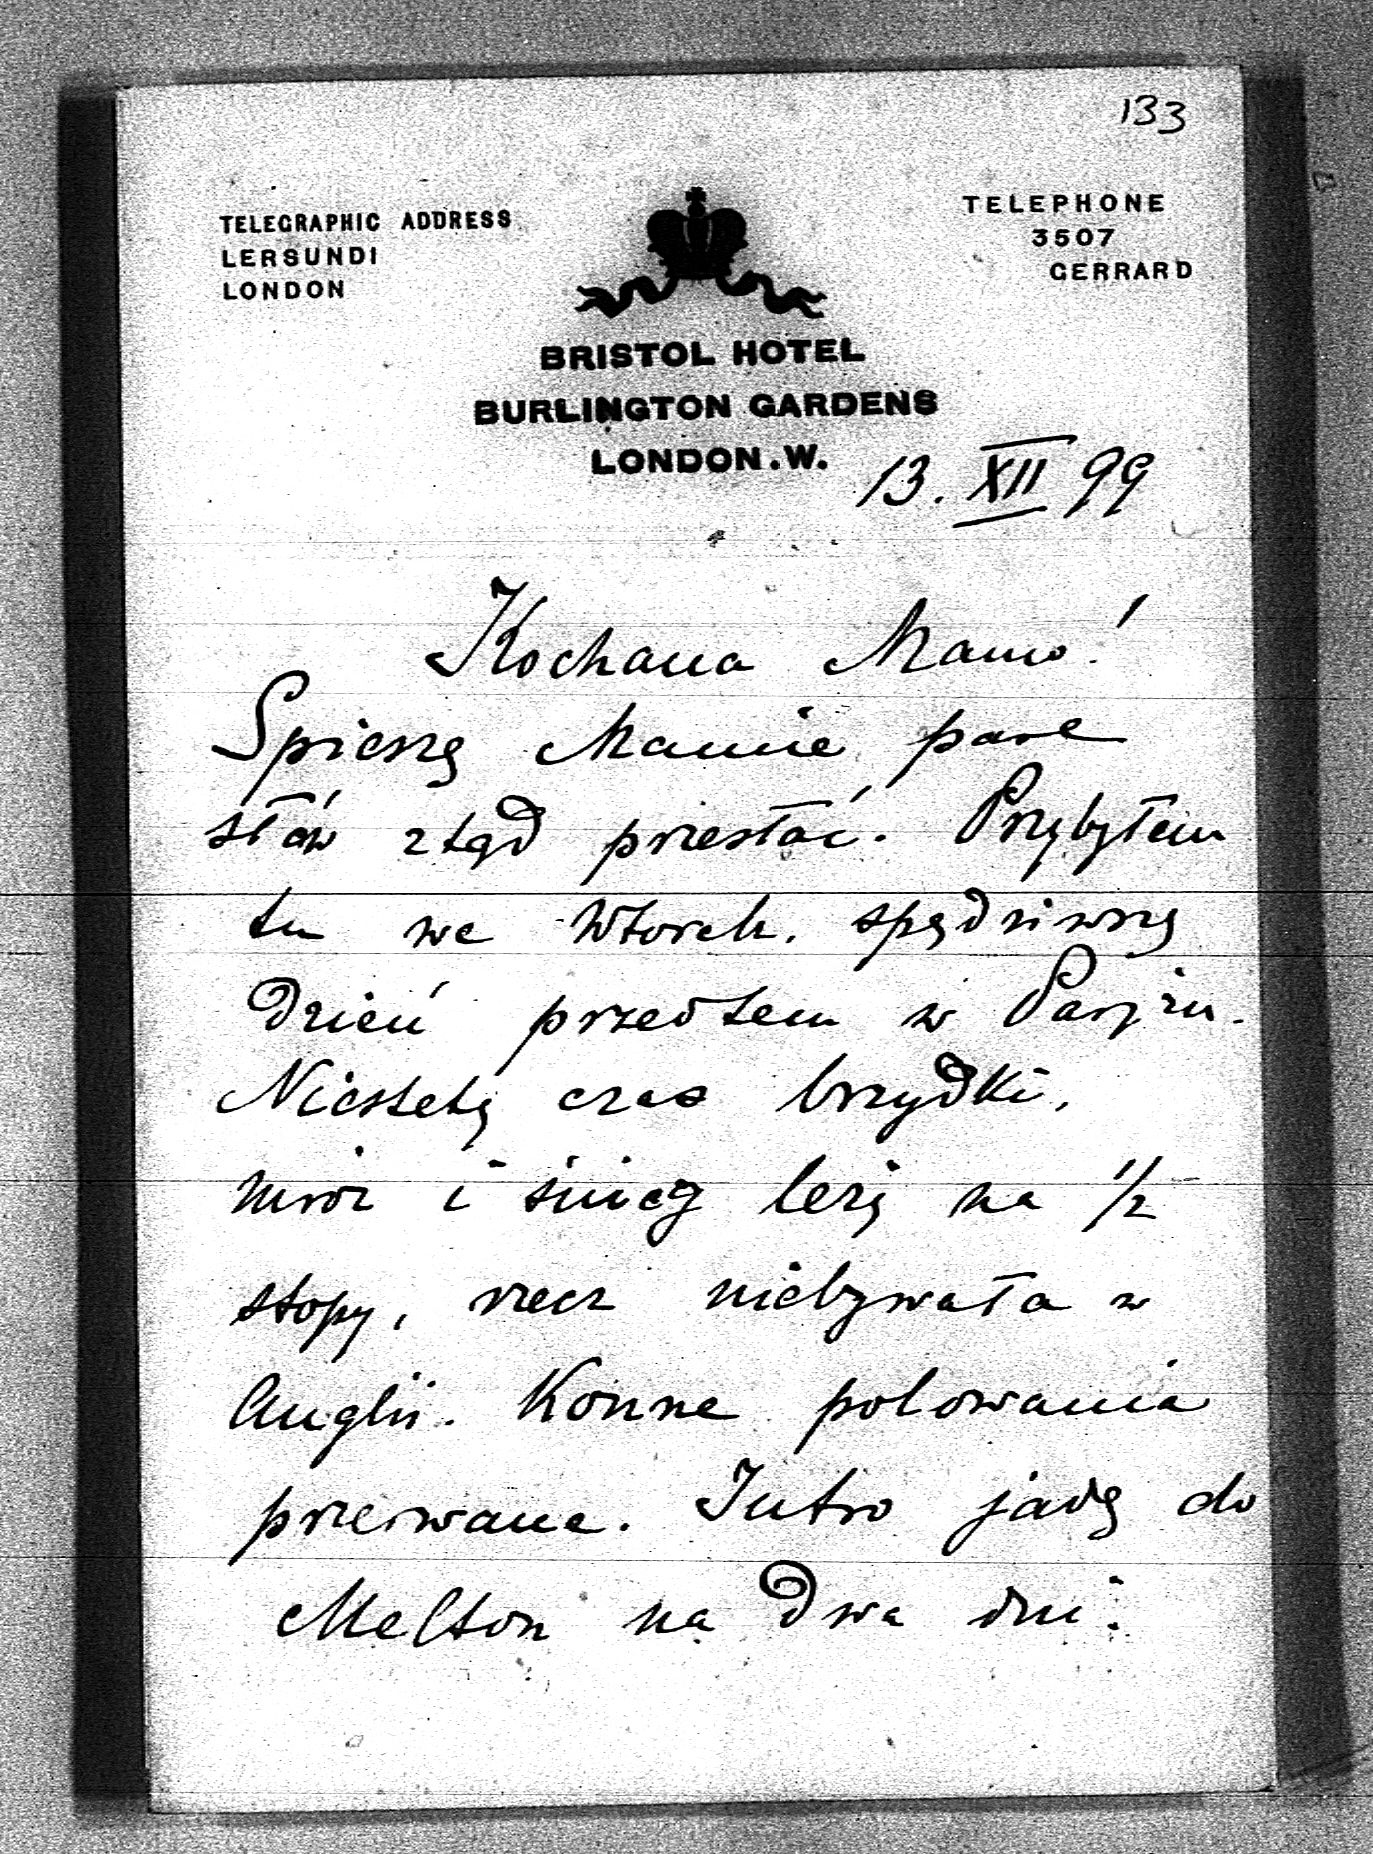 133
TELEGRAPHIC ADDRESS
LERSUNDI
LONDON
TELEPHONE
3507
GERRARD
BRISTOL HOTEL
BURLINGTON GARDENS
LONDON.W.
13. XII 99
Kochana Mamo!
Spieszę Mamie parę
słów ztąd przesłać. Przybyłem
tu we Wtorek, spędziwszy
dzień przedtem w Paryżu.
Niestety czas brzydki,
mróz i śnieg leży na 1/2
stopy, rzecz niebywała w
Anglii. Konne polowania
przerwane. Jutro jadę do
Melton na dwa dni.